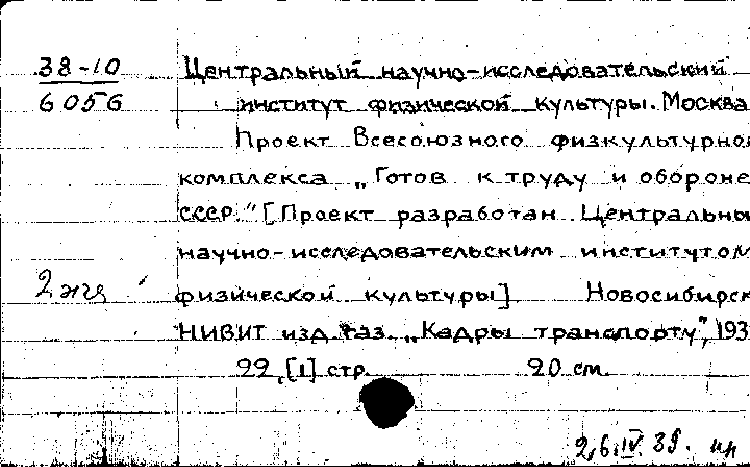 38-10 Центральный научно-исследовательский
6056 институт физической культуры. Москва
Проект Всесоюзного физкультурно
комплекса „Готов к труду и обороне
СССР." [Проект разработан Центральны
научно-исследовательским институтом
2 экз физической культуры] Новосибирск
НИВИТ изд. газ. „Кадры транспорту", 193
22, [1] стр. 20 см.
26.IV.39.